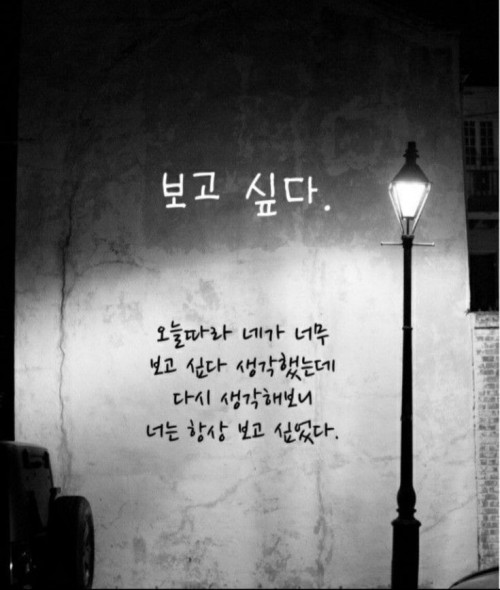 보고 싶다.
오늘따라 네가 너무
보고 싶다 생각했는데
다시 생각해보니
너는 항상 보고 싶었다.